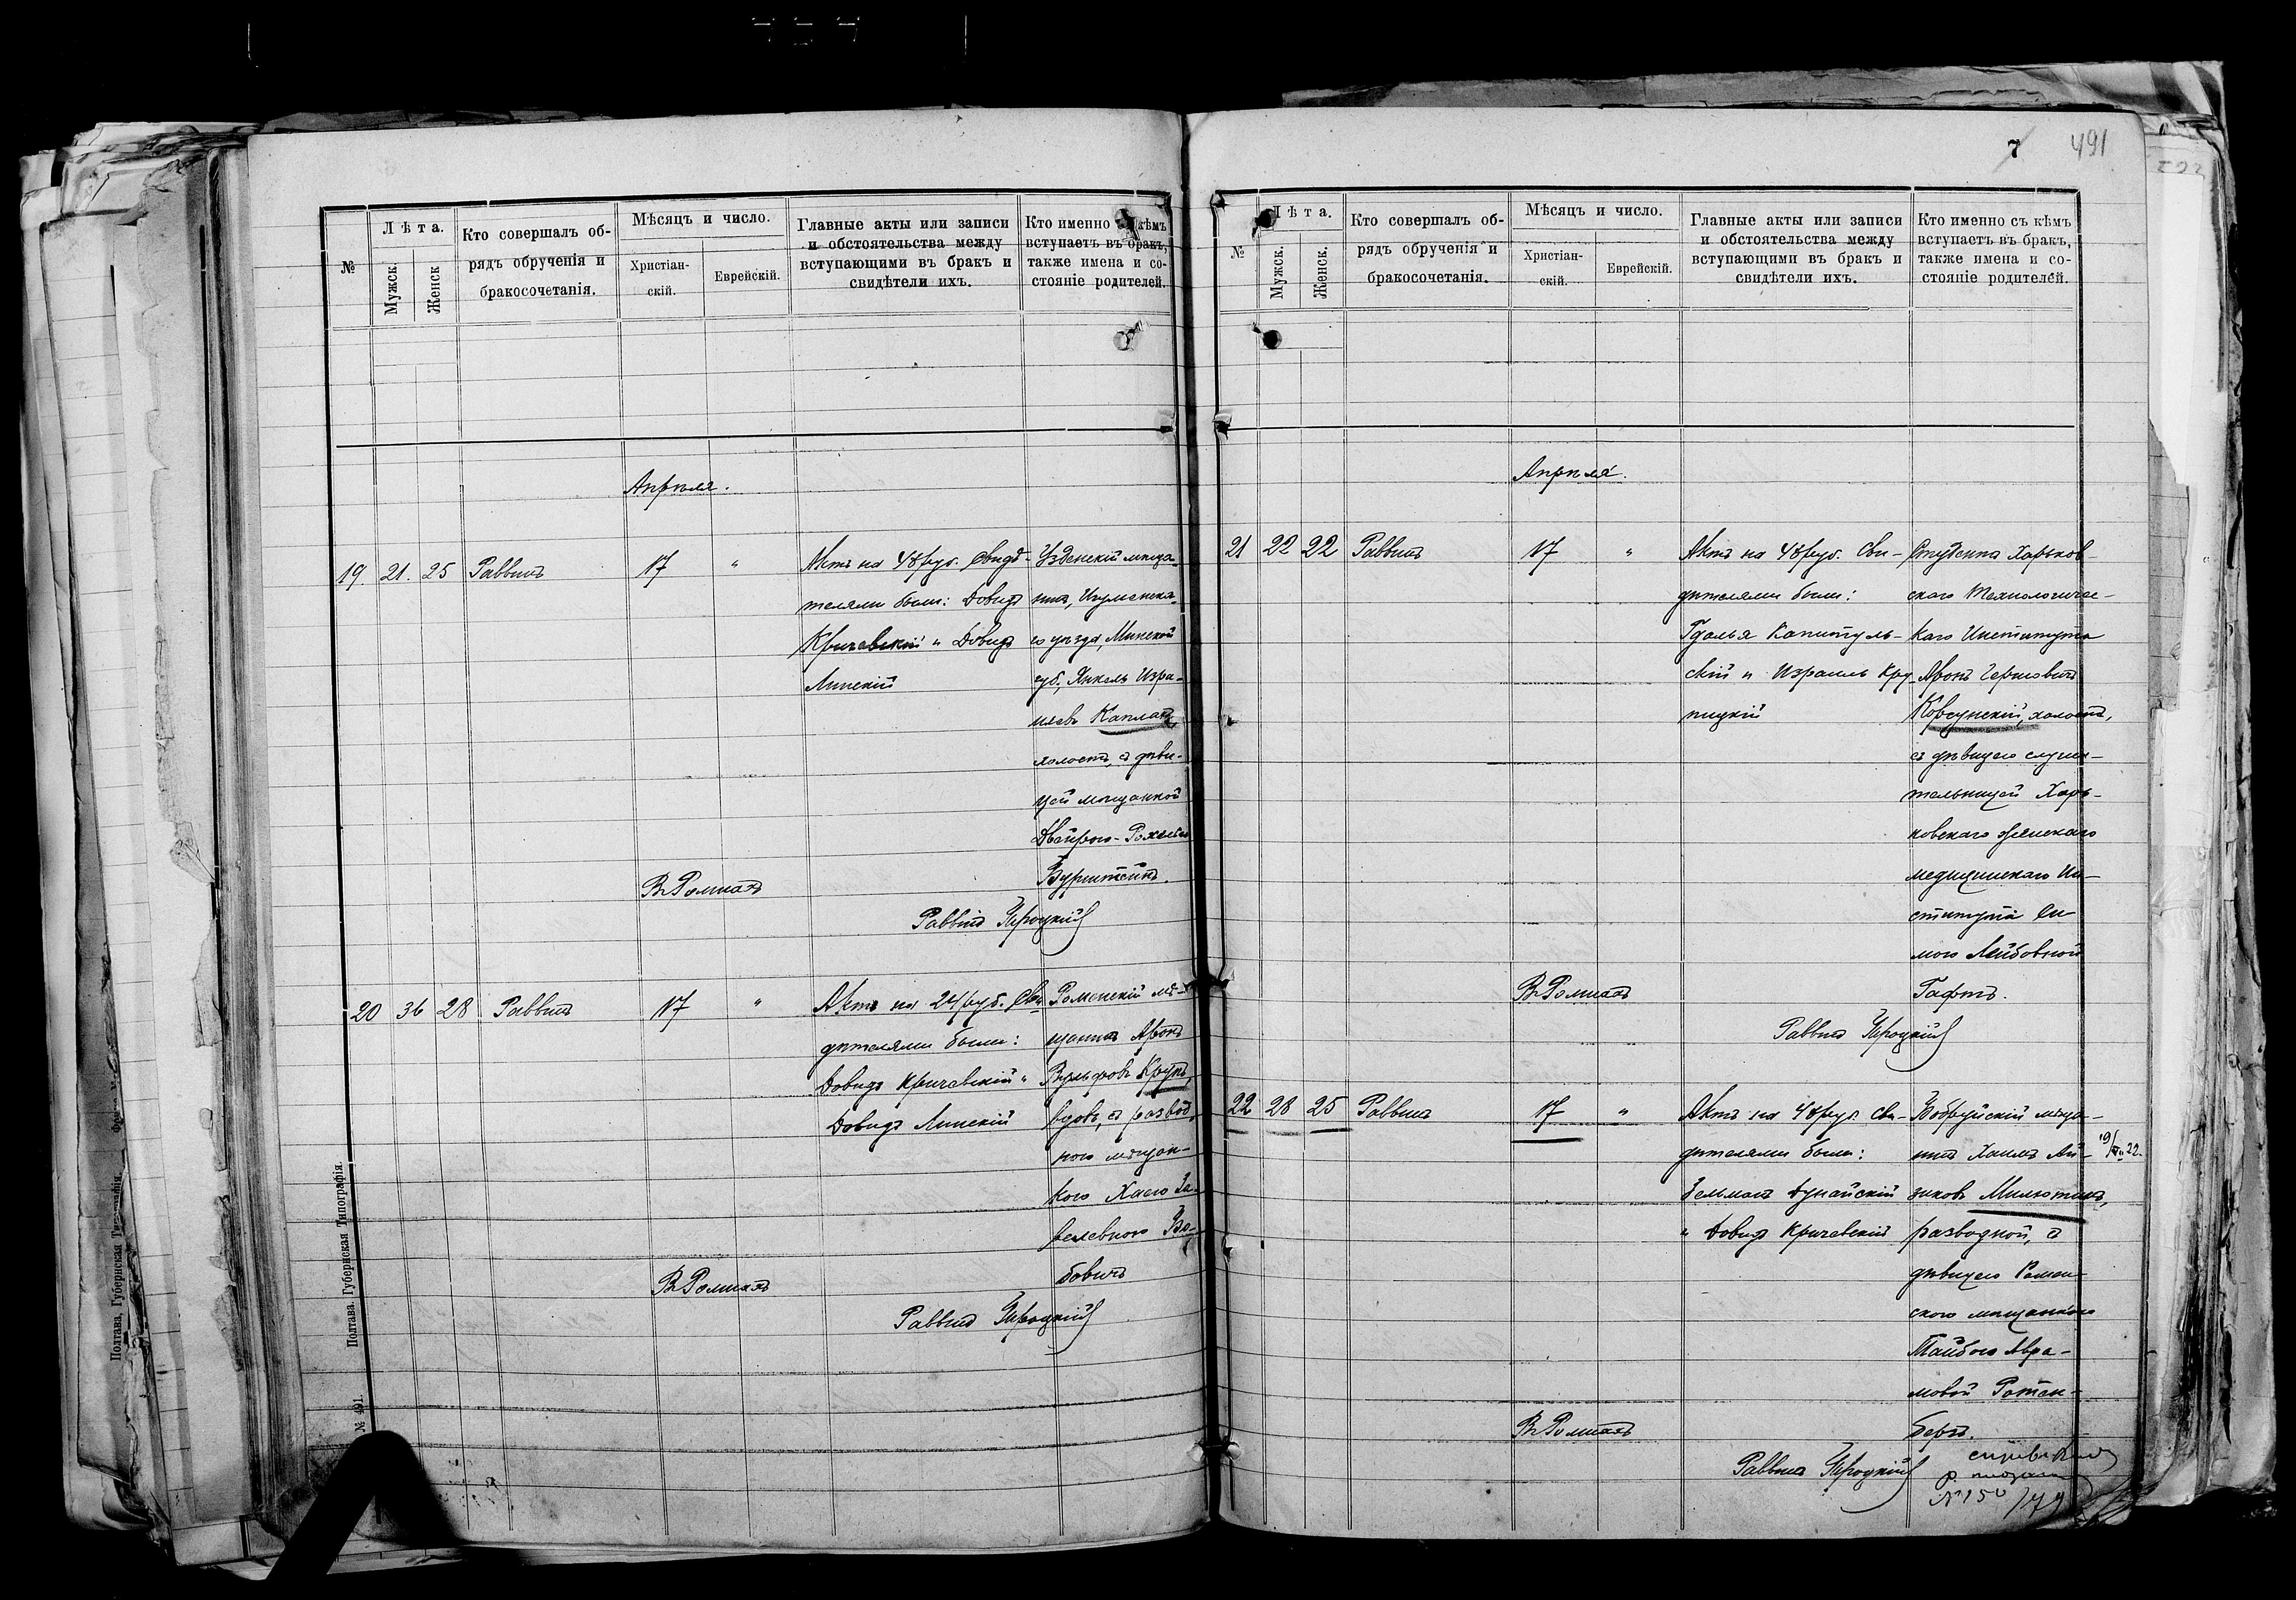 7 491
№
Лѣта.
Мужск.
Женск
Кто совершалъ об-
рядъ обрученія и
бракосочетанія.
Мѣсяцъ и число.
Христіан-
скій.
Еврейскій.
Главные акты или записи
и обстоятельства между
вступающими въ бракъ и
свидѣтели ихъ.
Кто именно кѣмъ
вступаетъ въ бракъ,
также имена и со-
стояніе родителей.
Апрѣля.
19 21. 25 Раввинъ 17 "
Актъ на 48 руб. Свидѣ-
телями были: Довидъ
Кричевскій и Довидъ
Липскій
Узденскій мѣща-
нинъ, Игуменска-
го уѣзда, Минской
губ., Янкель Изра-
илевъ Капланъ,
холостъ, съ дѣви-
цей мѣщанкой
Двейрою-Рохлею
Бурштейнъ.
Въ Ромнахъ
Раввинъ
20 36 28 Раввинъ 17 "
Актъ на 24 руб. Сви-
дѣтелями были:
Довидъ Кричевскій и
Довидъ Липскій
Роменскій мѣ-
щанинъ Аронъ
Вульфовъ Крупъ,
вдовъ, съ развод-
ною мѣщан-
кою Хаею За-
велевною
бовичъ
Въ Ромнахъ
Раввинъ
Полтава. Губернская Типографія.
№ 491.
Полтава, Губернская Типографія.
№
Лѣта.
Мужск.
Женск.
Кто совершалъ об-
рядъ обрученія и
бракосочетанія.
Мѣсяцъ и число.
Христіан-
скій.
Еврейскій.
Главные акты или записи
и обстоятельства между
вступающими въ бракъ и
свидѣтели ихъ.
Кто именно съ кѣмъ
вступаетъ въ бракъ,
также имена и со-
стояніе родителей.
Апрѣля.
21 22 22 Раввинъ 17 "
Актъ на 48 руб. Сви-
дѣтелями были:
Гдалья Капитуль-
скій и Израиль Кру-
пицкій
Студентъ Харьков-
скаго Технологичес-
каго Института
Аронъ Гершовичъ
Ковсунскій, холостъ,
съ дѣвицею слуша-
тельницей Харь-
ковскаго женскаго
медицинскаго Ин-
ститута Си-
мою Лейбовной
Гафтъ.
Въ Ромнахъ
Раввинъ
22 28 25 Раввинъ 17 "
Актъ на 48 руб. Сви-
дѣтелями были:
Зельманъ Дунайскій
и Довидъ Кричевскій
Бобруйскій мѣща-
нинъ Хаимъ Ай-
зиковъ Милютинъ,
разводной, съ
дѣвицею Ромен-
скою мѣщанкою
Тайбою Авра-
мовой Ротен-
бергъ.
Въ Ромнахъ
Раввинъ
№ 150